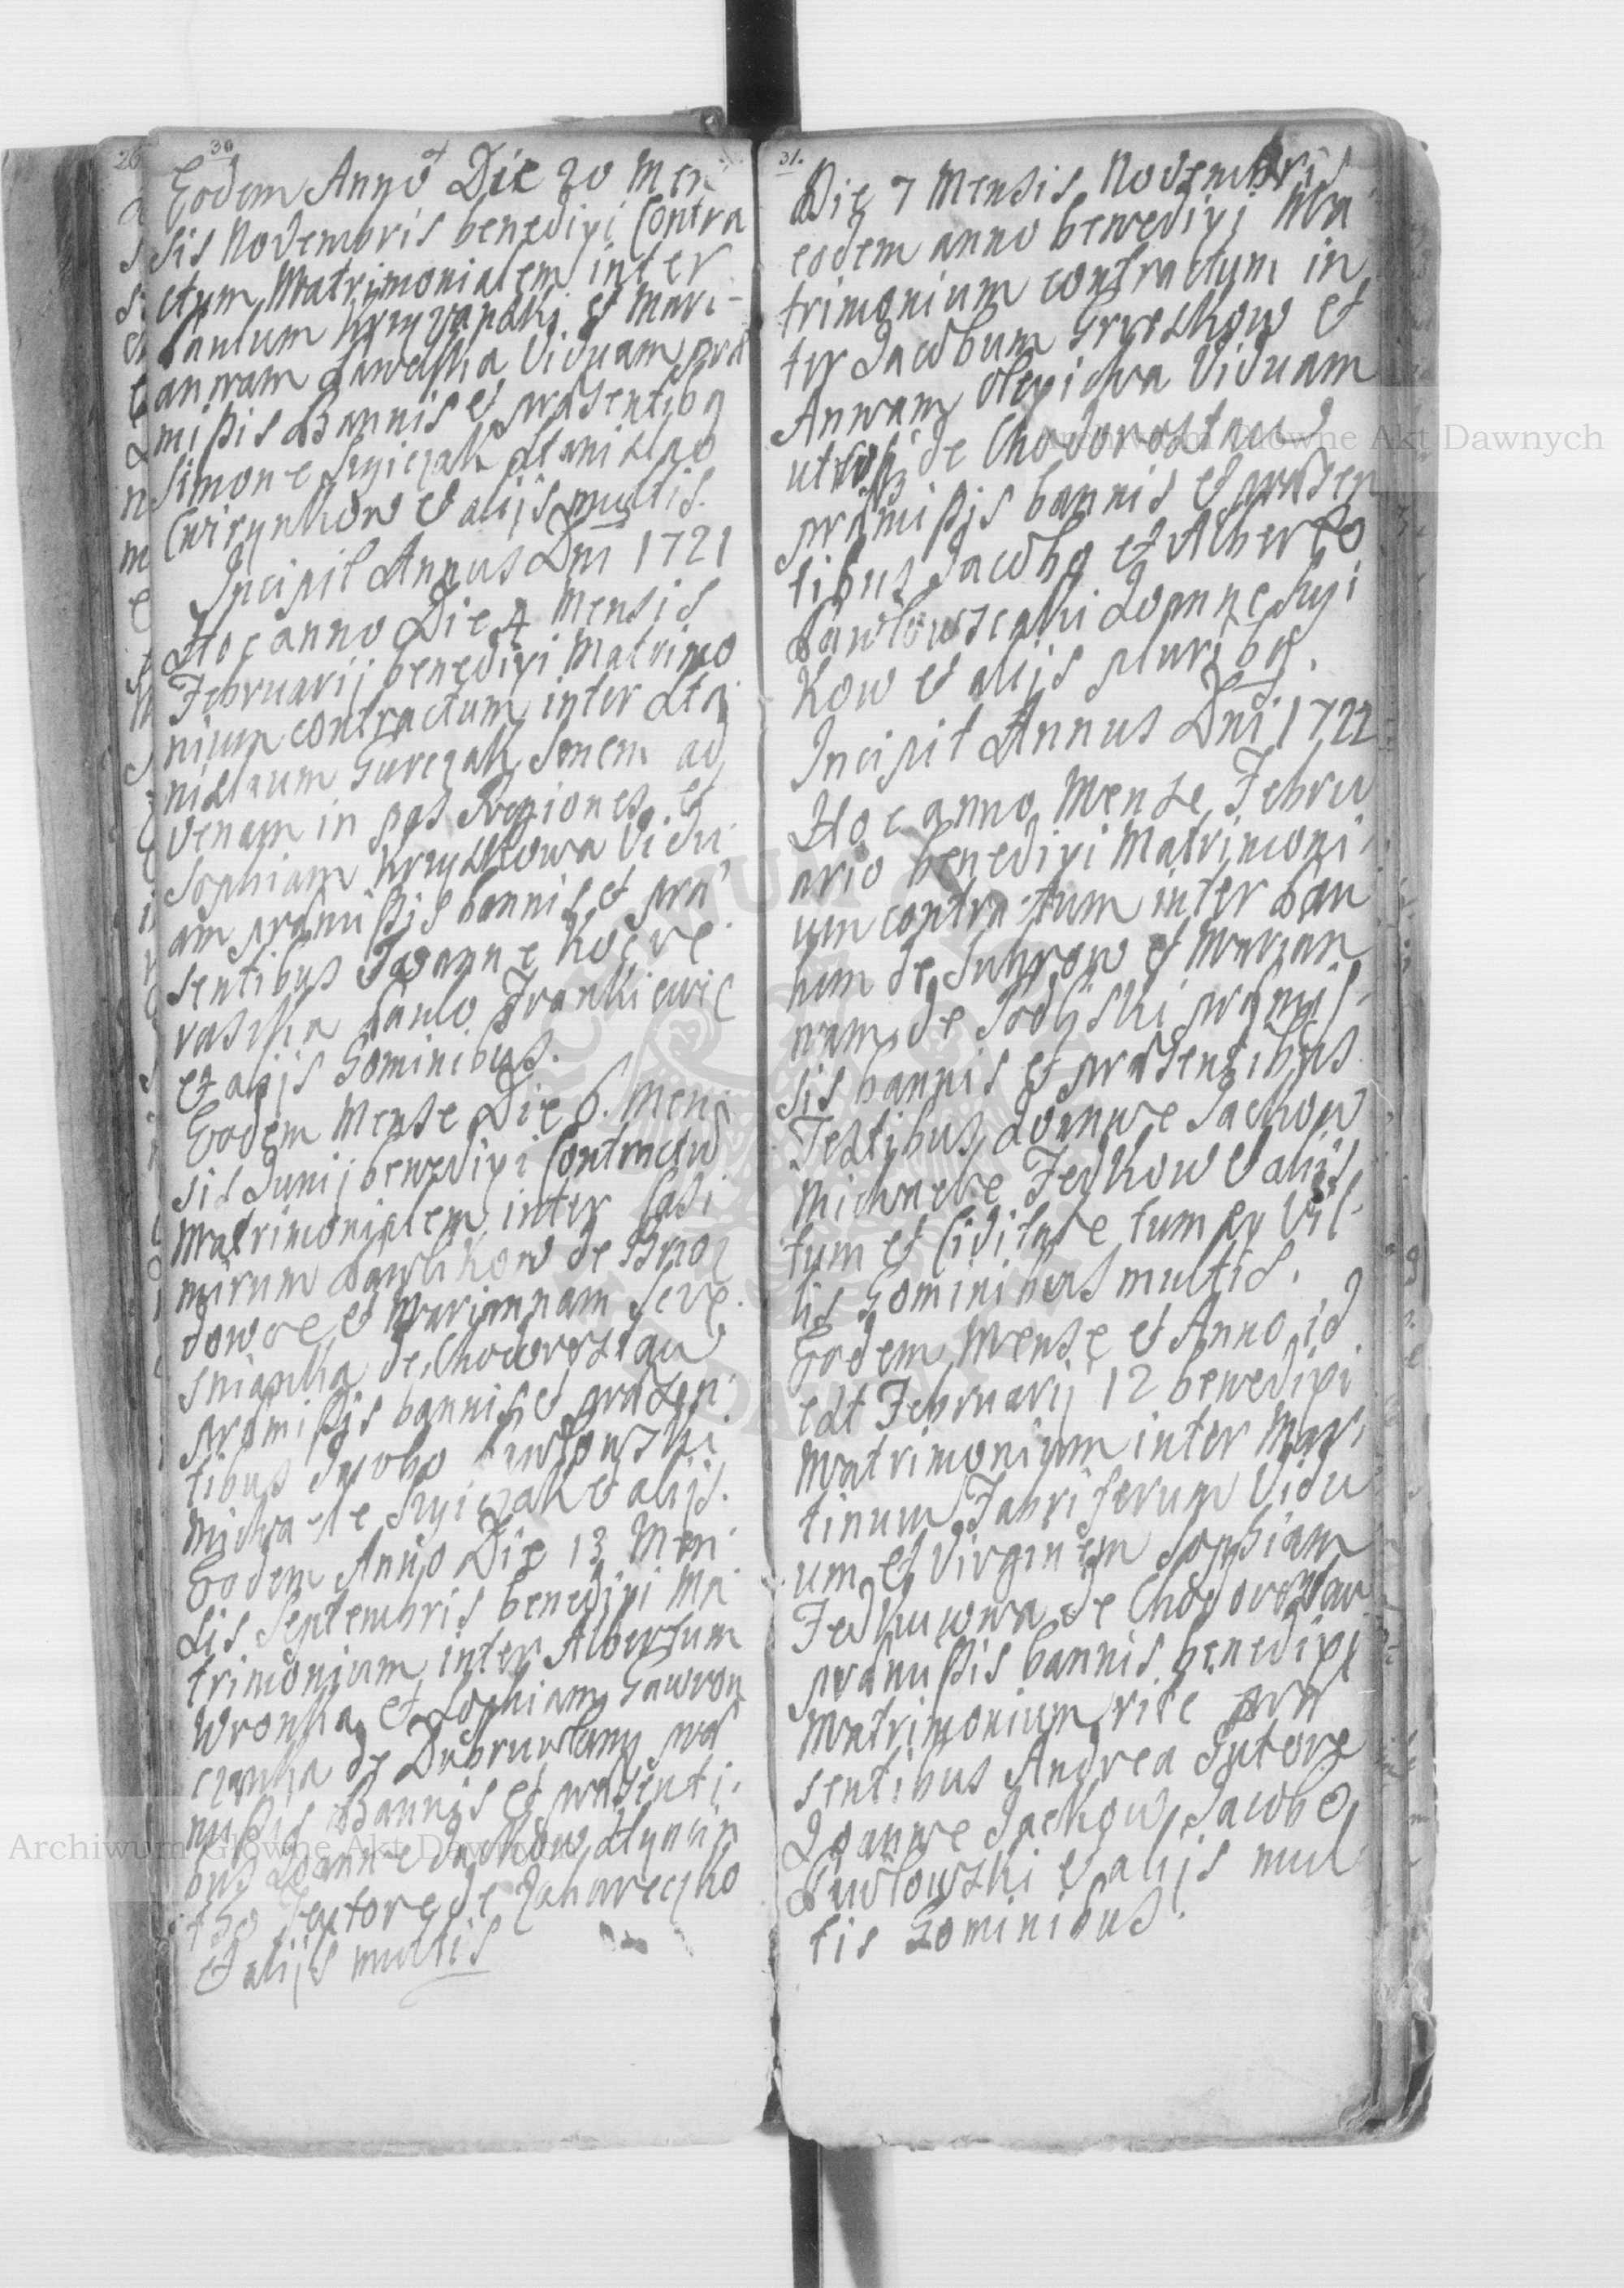 30
Eodem Anno Die 20 Men
sis Novembris benedixi Contra
ctum Matrimonialem inter
Paulum et Mari-
annam Viduam præ
mißis Bannis et præsentibq
Simone Szyiczak Stanislao
Cwirynkow et alijs multis.
Incipit Annus Dni 1721
Hoc anno Die 4 Mensis
Februarij benedixi Matrimo
nium contractum inter Sta
nislaum Gurczak ad
venam in Regiones et
Sophiam Kryszkowa Vidu
am præmißis bannis et præ
sentibus Joanne
Paulo Frankiewic
et alijs Hominibus.
Eodem Mense Die 6. Men
sis Junij benedixi Contractū
Matrimonialem inter Casi
mirum Pawlikow de Brzoz
dowce et Mariannam
de Chodorostaw
præmißis bannis et præsen
tibus Jacobo Pawlowski
Michaele Szyiczak et alijs.
Eodem Anno Die 13 Men
sis Septembris benedixi Ma
trimonium inter Albertum
Wronka et Sophiam Gawron
czanka de Dubrowlany præ
mißis Bannis et præsenti
bus Joanne Jackow
Sutore de
et alijs multis
31.
Die 7 Mensis Novembris
eodem anno benedixi Ma
trimonium contractum in
ter Jacobum Gryeskow et
Annam Viduam
utrosq de Chodorostaw
præmißis bannis et præsen
tibus Jacobo et Alberto
Pawlowscaki Joanne Szyi
kow et alijs pluribq.
Incipit Annus Dni 1722
Hoc anno Mense Febru
ario benedixi Matrimoni
um contractum inter
de et Marian
nam de præmis
sis bannis et præsentibus
Testibus Joanne Jackow
Michaele Fedkow et alijs
tum et Civitate tum ex Vil
lis Hominibus multis.
Eodem Mense et Anno id
est Februarij 12 benedixi
Matrimonium inter Mar
tinum Fabriferum Vidu
um et Virginem Sophiam
de Chodorostaw
præmißis bannis benedixi
Matrimonium rite præ
sentibus Andrea Sutore
Joanne Jackow Jacobo
Pawlowski et alijs mul
tis Hominibus.
Archiwum Główne Akt Dawnych
Archiwum Główne Akt Dawnych